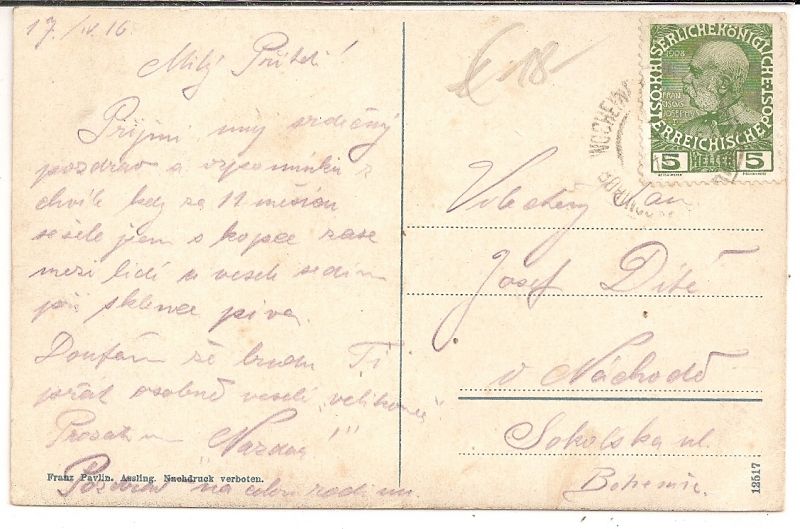 17./IV. 16.
Milý Příteli!
Přijmi můj srdečný
pozdrav a vzpomínku z
chvíle kdy za 11 měsíců
sešel jsem s kopce zase
mezi lidi a vesele sedím
při sklence piva.
Doufám že budu Ti
přát osobně veselé "velikonoce"
Prozatím "Nazdar!"
Pozdrav na celou rodinu.
Franz Pavlin. Assling. Nachdruck verboten.
18-
KAISERLICHE KÖNIGLICHE ÖSTERREICHISCHE POST
1908
FRANZ JOSEPH I
5 HELLER 5
WOCHEINER
Velectěný Pan
Josef Dítě
v Náchodě
Sokolská ul
Bohemie.
12517